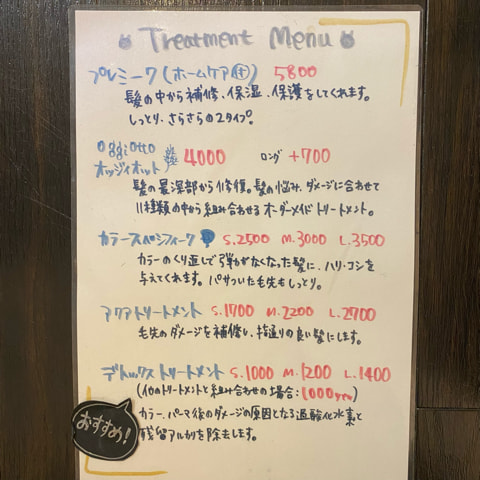 Treatment Menu
プレミーク(ホームケア付) 5800
髪の中から補修、保湿、保護をしてくれます。
しっとり・さらさらの2タイプ。
Oggi Otto
オッジィオット 4000 ロング +700
髪の最深部から修復。髪の悩み、ダメージに合わせて
11種類の中から組み合わせるオーダーメイドトリートメント。
カラースペシフィーク S.2500 M.3000 L.3500
カラーのくり返しで弾力がなくなった髪に、ハリ・コシを
与えてくれます。パサついた毛先もしっとり。
アクアトリートメント S.1700 M.2200 L.2700
毛先のダメージを補修し、指通りの良い髪にします。
デトックストリートメント S.1000 M.1200 L.1400
(他のトリートメントと組み合わせの場合:1000yen)
カラー、パーマ後のダメージの原因となる過酸化水素と
残留アルカリを除去します。
おすすめ!